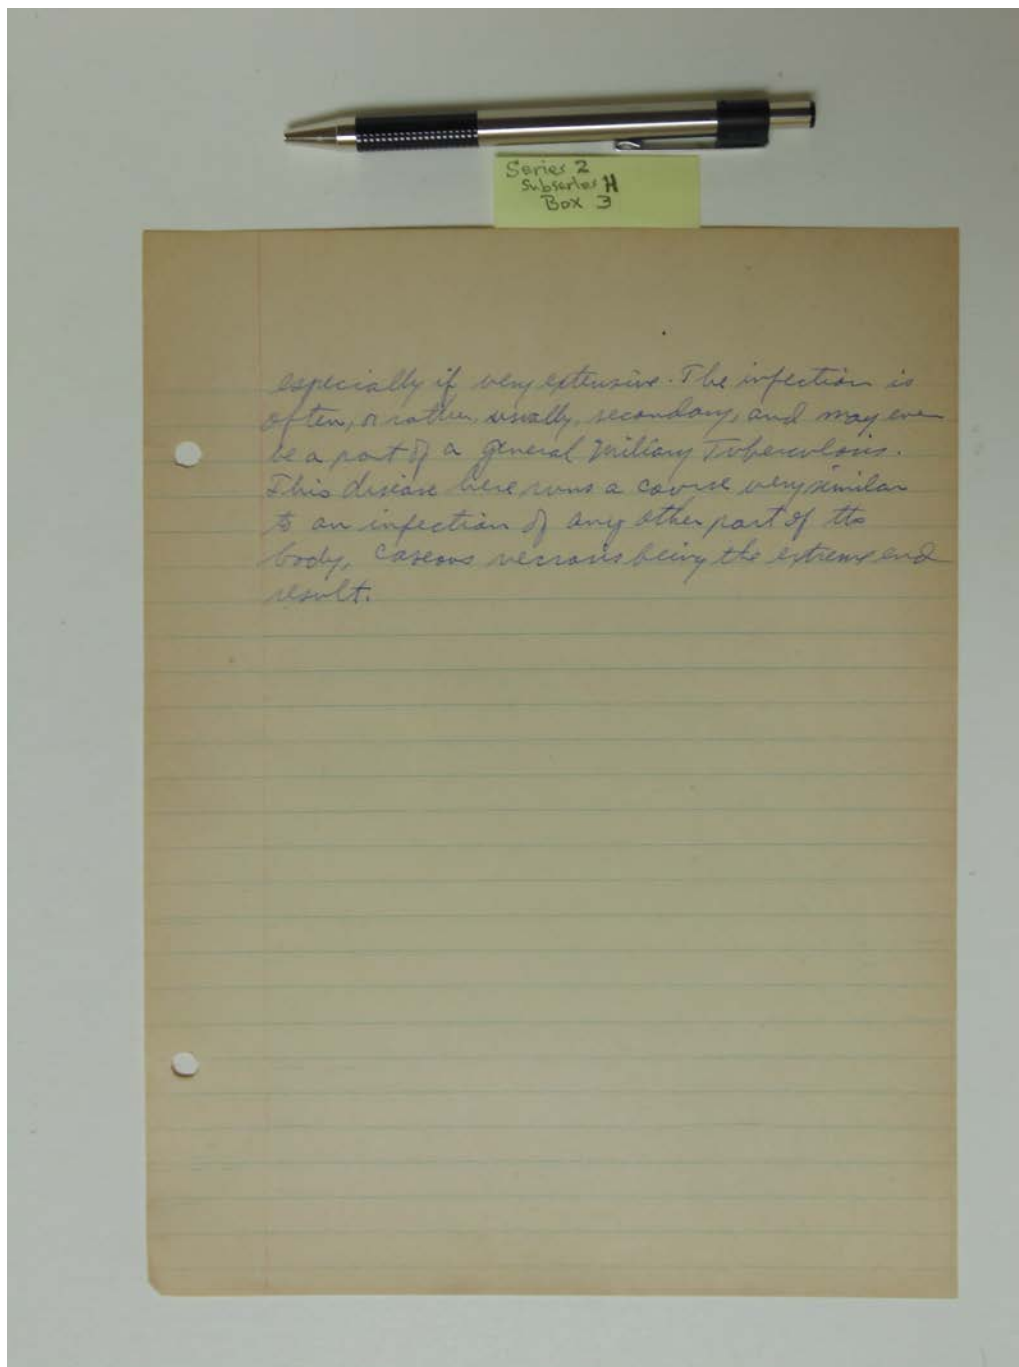 Series 2
Subseries H
Box 3
especially if very extensive. The infection is
often, or rather, usually, secondary, and may even
be a part of a general Miliary Tuberculosis.
This disease here runs a course very similar
to an infection of any other part of the
body, caseous necrosis being the extreme end
result.